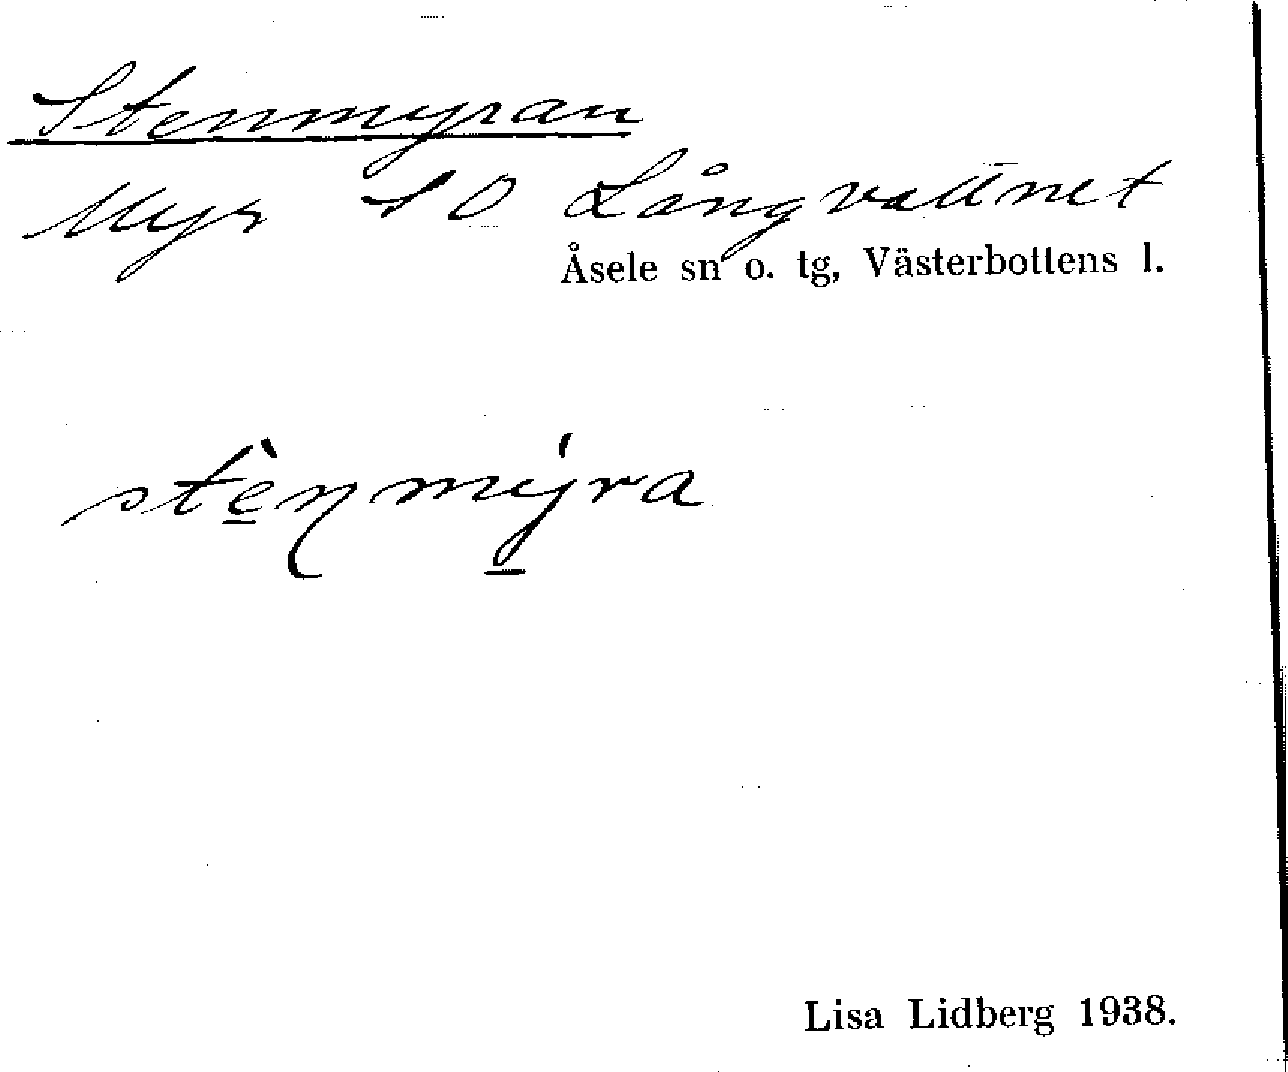 Stenmyran
Myr SO Långvattnet
Åsele sn o. tg, Västerbottens l.
stè̱ŋmý̱ra
Lisa Lidberg 1938.